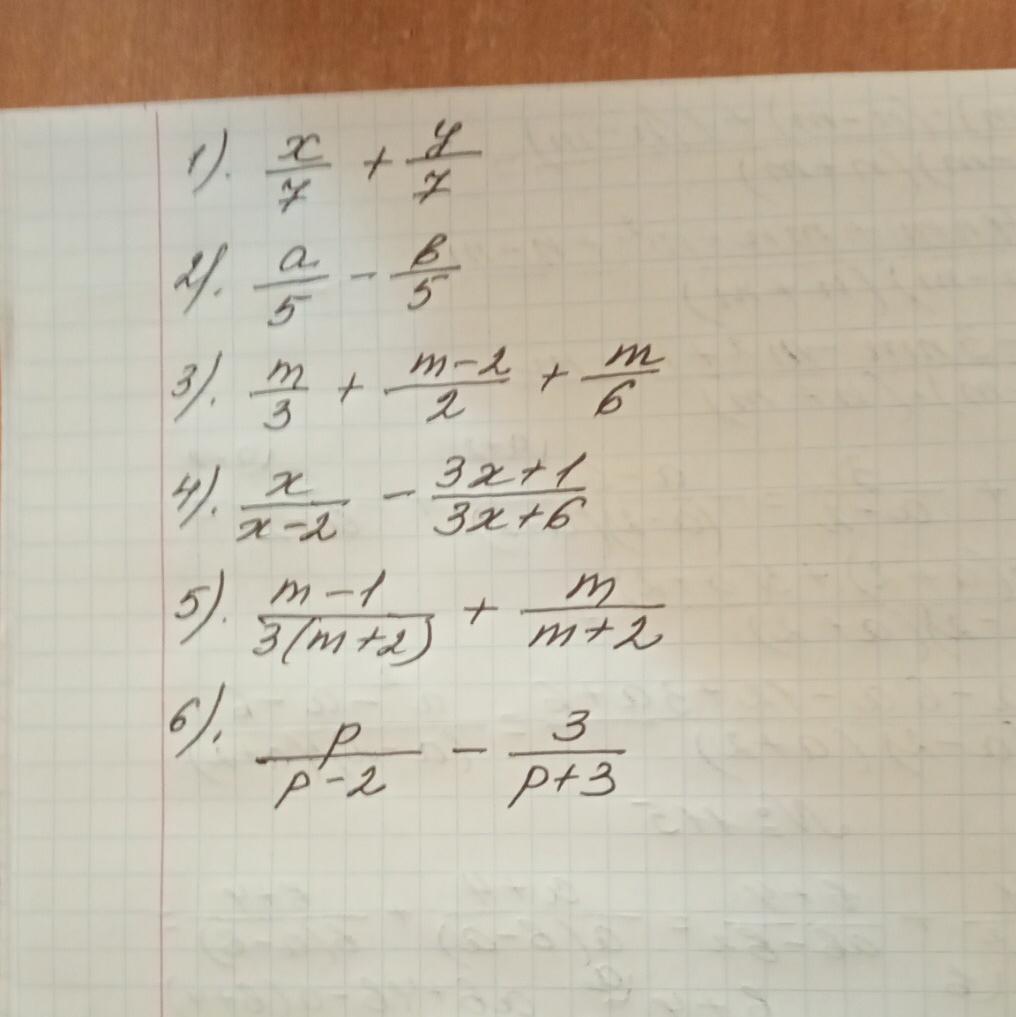 1). x/7 + y/7
2). a/5 - в/5
3). m/3 + m-2/2 + m/6
4). x/x-2 - 3x+1/3x+6
5). m-1/3(m+2) + m/m+2
6). p/p-2 - 3/p+3